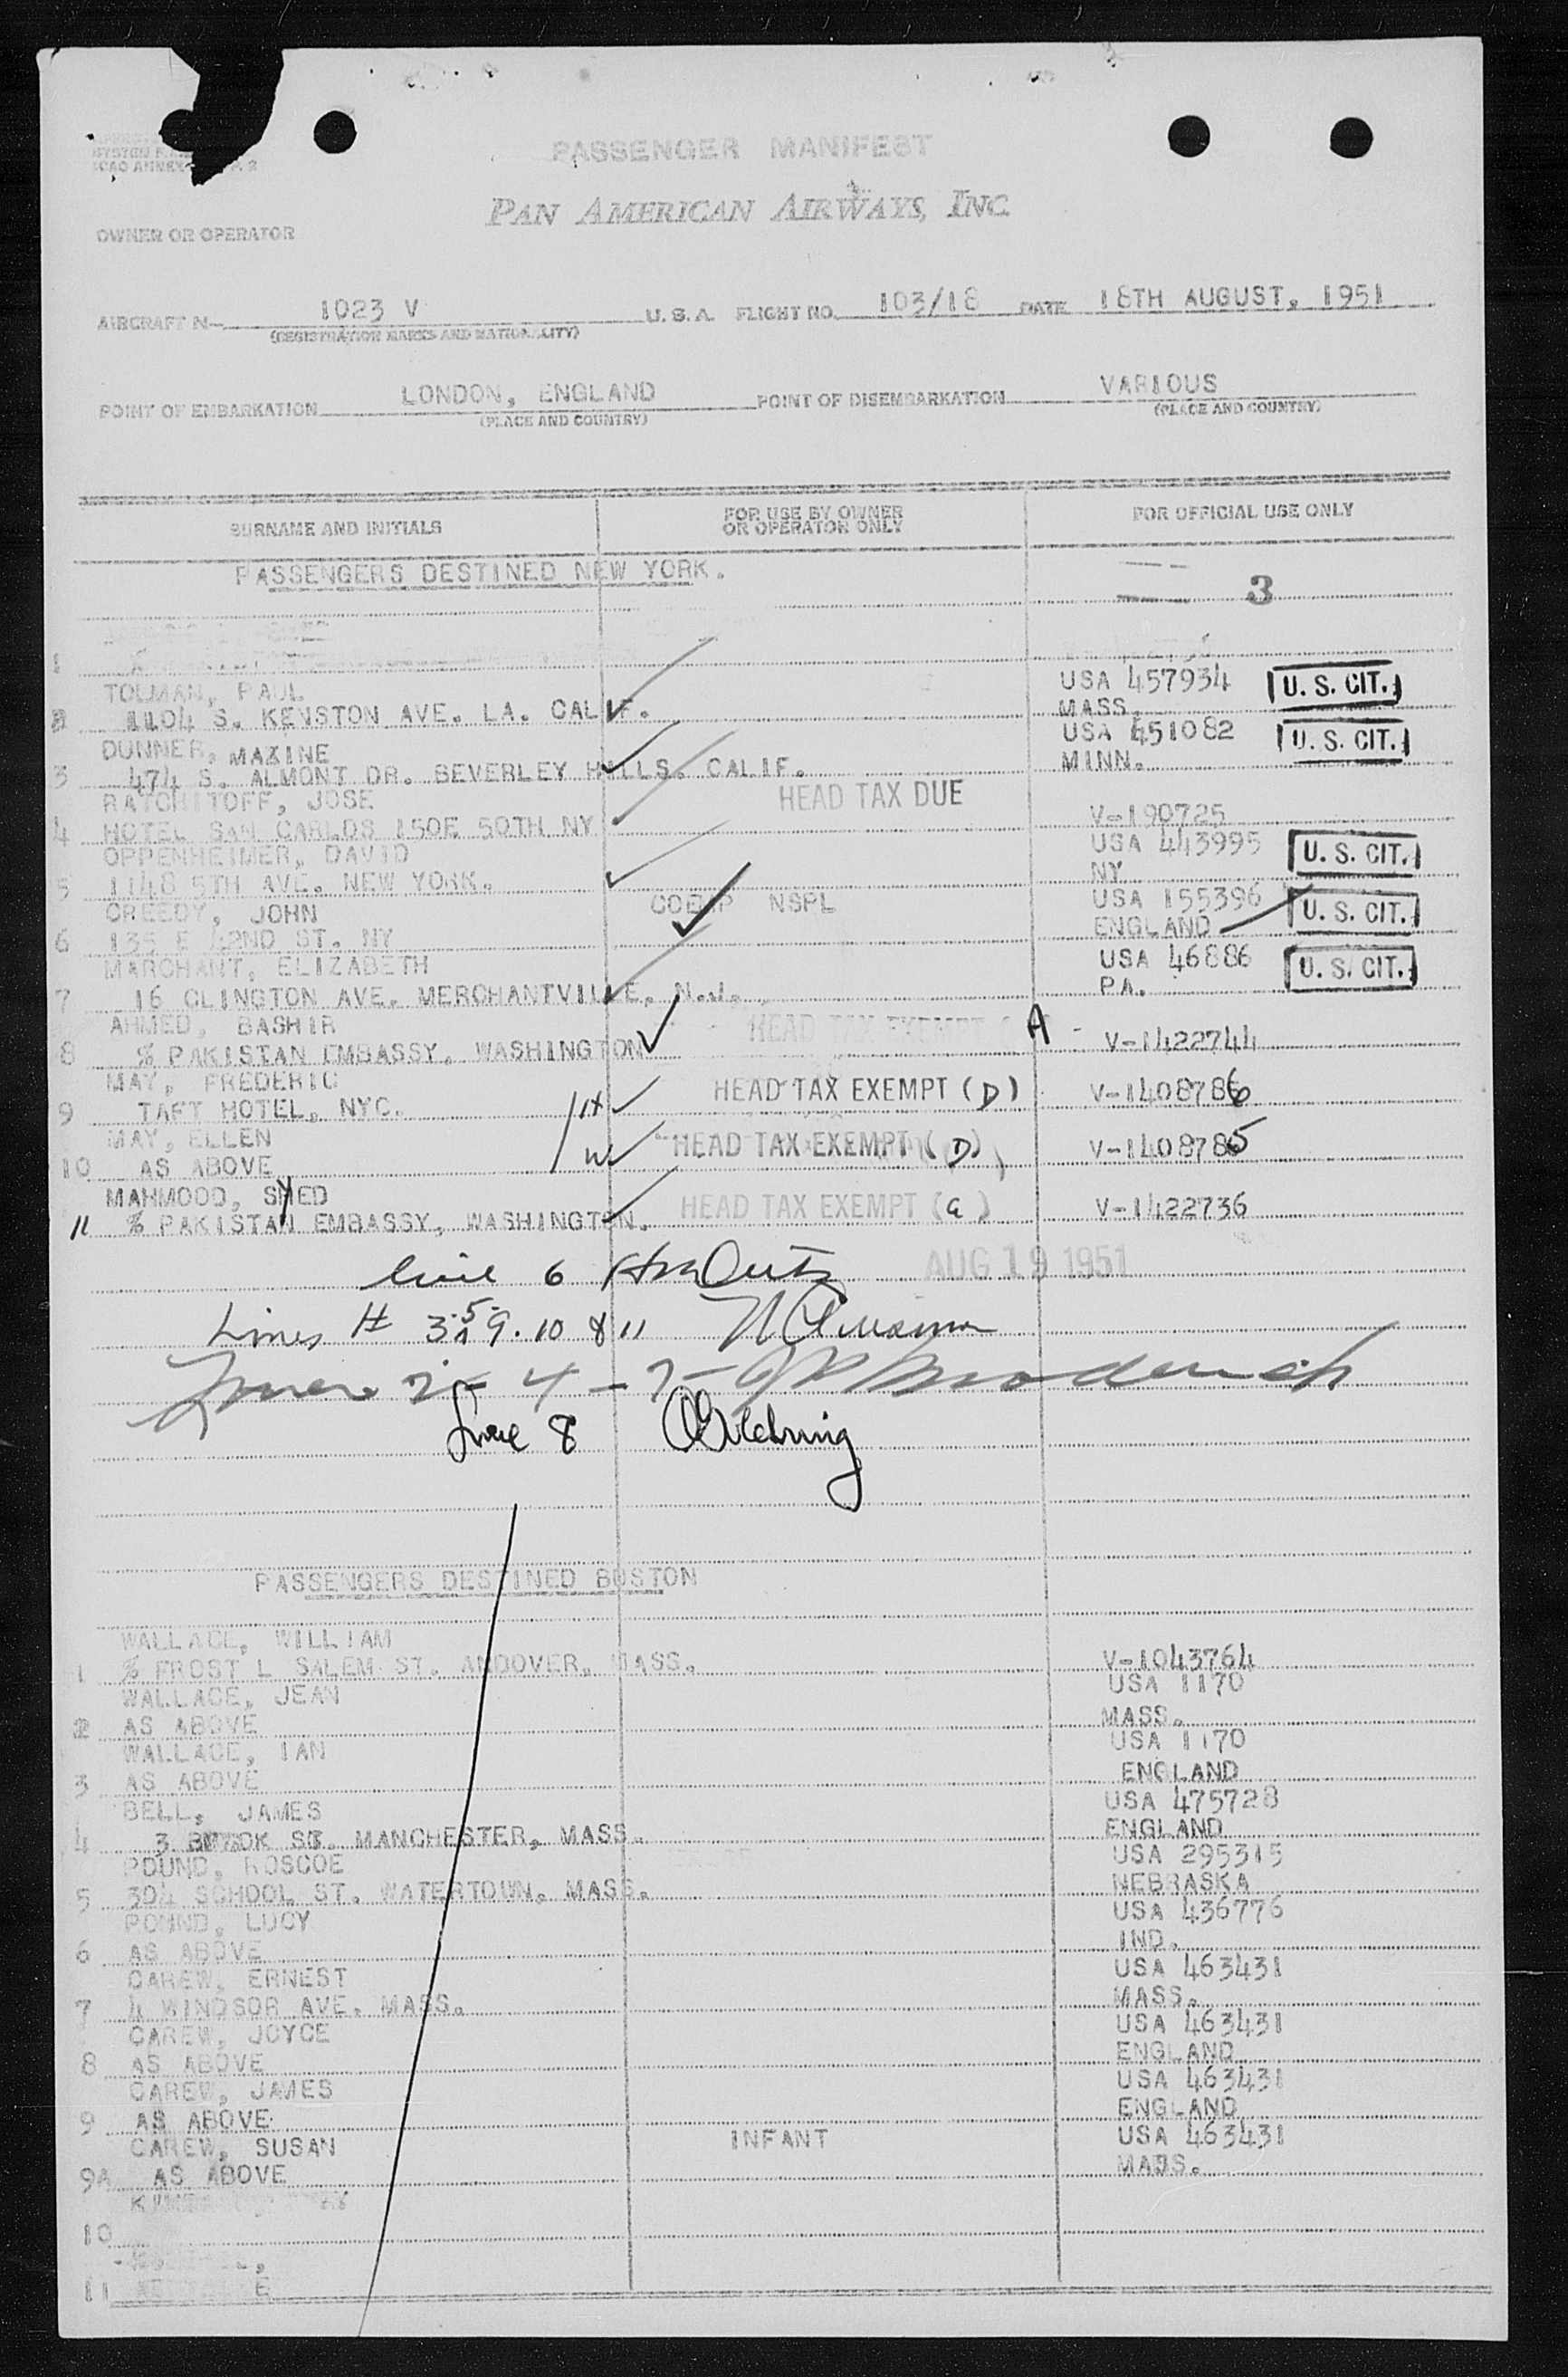 PASSENGER MANIFEST
PAN AMERICAN AIRWAYS, INC.
OWNER OR OPERATOR
AIRCRAFT N- 1023 V U. S. A. FLIGHT NO. 103/18 DATE 18TH AUGUST, 1951
(REGISTRATION MARKS AND NATIONALITY)
POINT OF EMBARKATION LONDON, ENGLAND POINT OF DISEMBARKATION VARIOUS
(PLACE AND COUNTRY) (PLACE AND COUNTRY)
SURNAME AND INITIALS FOR USE BY OWNER OR OPERATOR ONLY FOR OFFICIAL USE ONLY
PASSENGERS DESTINED NEW YORK.
3
1
TOLMAN, PAUL USA 457934 U. S. CIT.
2 1104 S. KENSTON AVE. LA. CALIF. MASS.
DUNNER, MAXINE USA 451082 U. S. CIT.
3 474 S. ALMONT DR. BEVERLEY HILLS. CALIF. MINN.
RATCHITOFF, JOSE HEAD TAX DUE
4 HOTEL SAN CARLOS 150E 50TH NY V-190725
OPPENHEIMER, DAVID USA 443995 U. S. CIT.
5 1148 5TH AVE. NEW YORK. NY
CREEDY, JOHN NSPL USA 155396 U. S. CIT.
6 135 E 42ND ST. NY ENGLAND
MARCHANT, ELIZABETH USA 46886 U. S. CIT.
7 16 CLINGTON AVE. MERCHANTVILLE, N.J. PA.
AHMED, BASHIR HEAD TAX EXEMPT ( A
8 % PAKISTAN EMBASSY, WASHINGTON V-1422744
MAY, FREDERIC HEAD TAX EXEMPT (D)
9 TAFT HOTEL, NYC. V-1408786
MAY, ELLEN HEAD TAX EXEMPT (D)
10 AS ABOVE V-1408785
MAHMOOD, SYED HEAD TAX EXEMPT (a)
11 % PAKISTAN EMBASSY, WASHINGTON. V-1422736
Line 6 AUG 19 1951
Lines # 3. 5. 9. 10 & 11
Lines 2 - 4 - 7 -
Line 8
PASSENGERS DESTINED BOSTON
WALLACE, WILLIAM
1 % FROST L SALEM ST. ANDOVER, MASS. V-1043764
WALLACE, JEAN USA 1170
2 AS ABOVE MASS.
WALLACE, IAN USA 1170
3 AS ABOVE ENGLAND
BELL, JAMES USA 475728
4 3 ST. MANCHESTER, MASS. ENGLAND
POUND, ROSCOE USA 295315
5 304 SCHOOL ST. WATERTOWN. MASS. NEBRASKA
POUND, LUCY USA 436776
6 AS ABOVE IND.
CAREW, ERNEST USA 463431
7 4 WINDSOR AVE. MASS. MASS.
CAREW, JOYCE USA 463431
8 AS ABOVE ENGLAND
CAREW, JAMES USA 463431
9 AS ABOVE ENGLAND
CAREW, SUSAN INFANT USA 463431
9A AS ABOVE MASS.
10
11